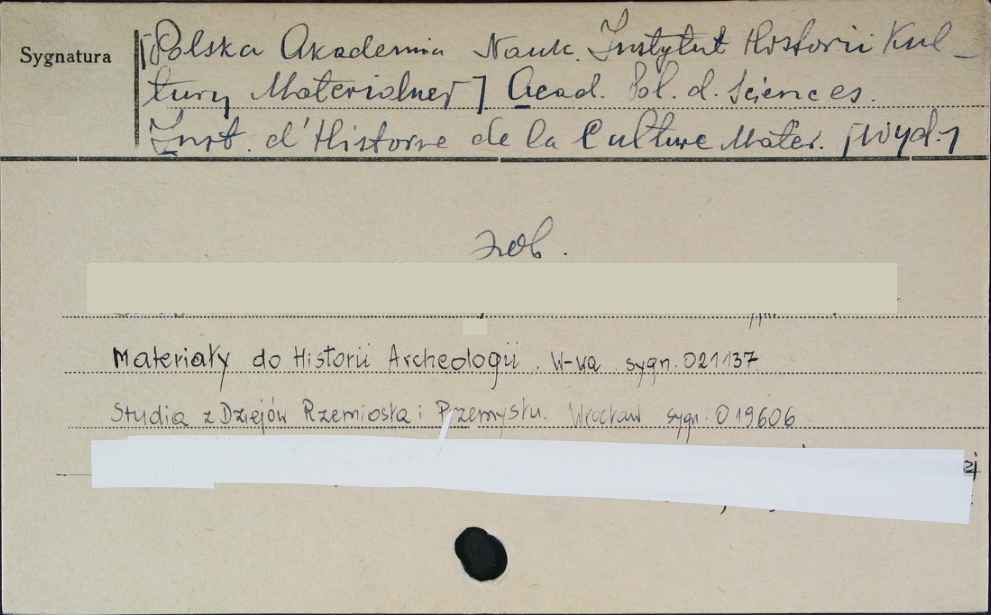 Sygnatura
[Polska Akademia Nauk. Instytut Historii Kul-
tury Materialnej] Acad. Pol. d. Sciences.
Inst. d'Histoire de la Culture Mater. [wyd.]
zob.
Materiały do Historii Archeologii. W-wa sygn. 021137
Studia z Dziejów Rzemiosła i Przemysłu. Wrocław sygn. 019606